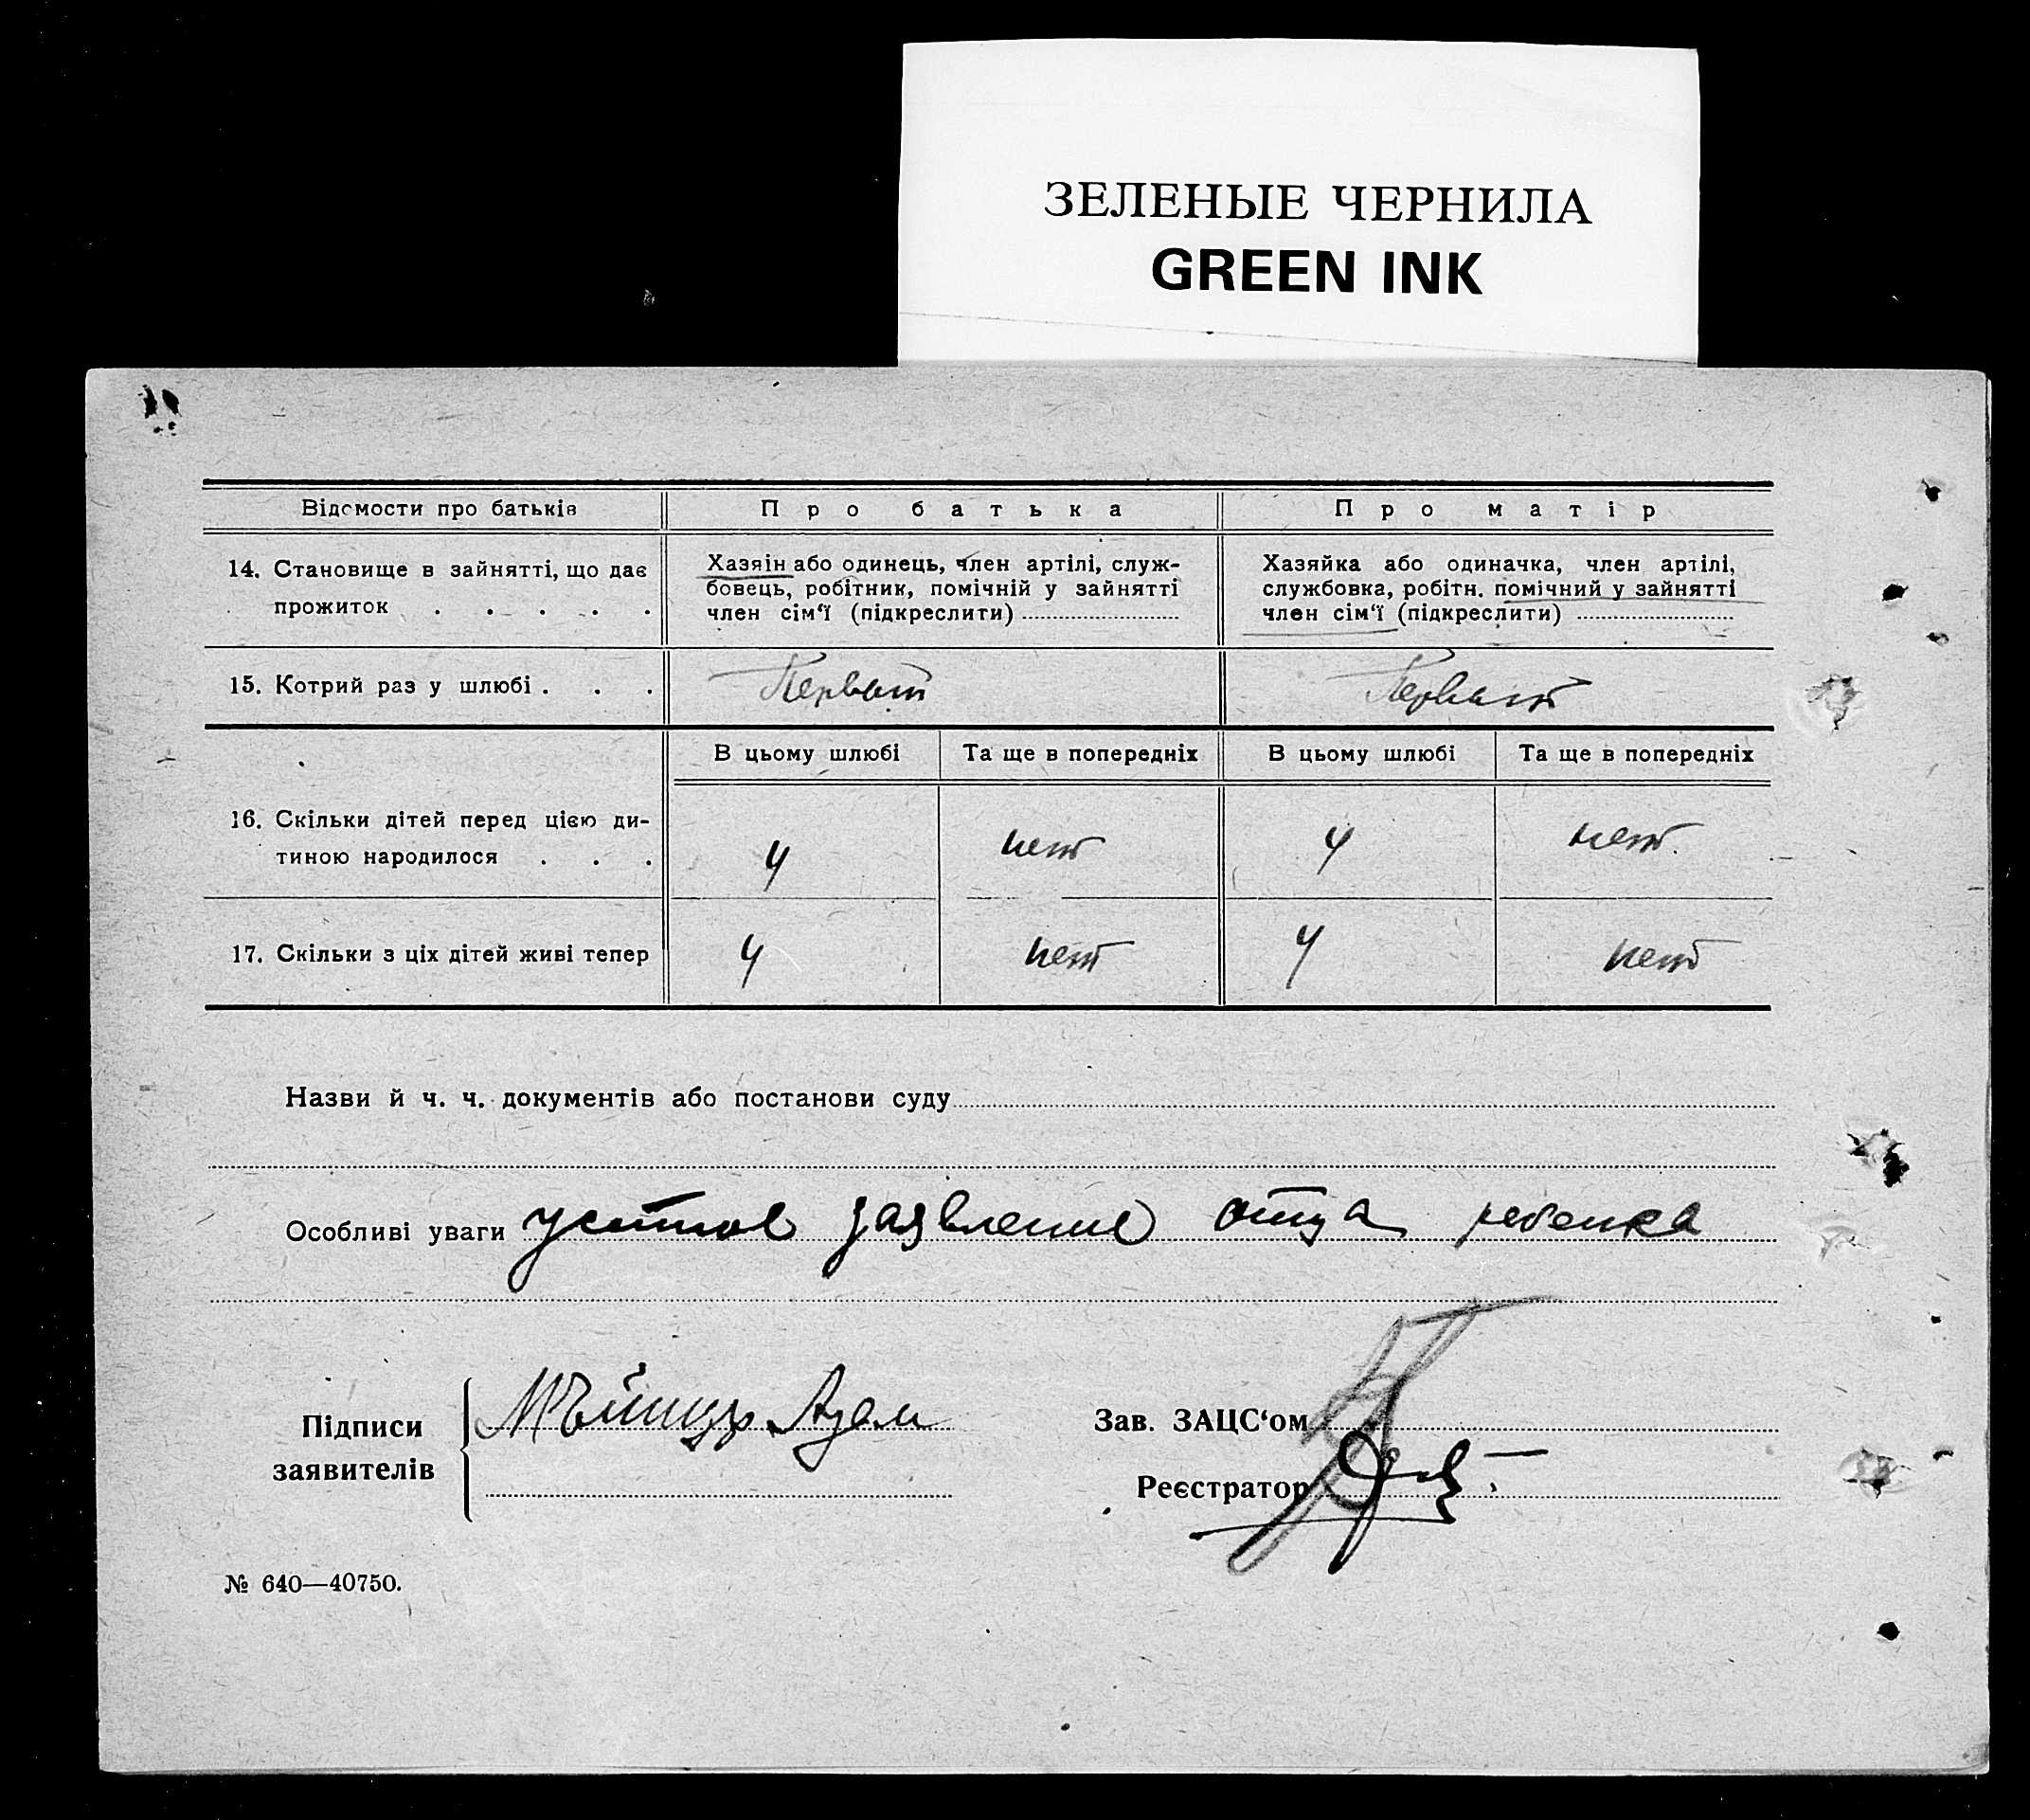 ЗЕЛЕНЫЕ ЧЕРНИЛА
GREEN INK
Відомости про батьків
Про батька
Про матір
14. Становище в зайнятті, що дає
прожиток . . . . .
Хазяін або одинець, член артілі, служ-
бовець, робітник, помічній у зайнятті
член сім‘ї (підкреслити)
Хазяйка або одиначка, член артілі,
службовка, робітн. помічний у зайнятті
член сім‘ї (підкреслити)
15. Котрий раз у шлюбі . . .
Первый
Первый
В цьому шлюбі
Та ще в попередніх
В цьому шлюбі
Та ще в попередніх
16. Скільки дітей перед цією ди-
тиною народилося . . .
4
нет
4
нет.
17. Скільки з ціх дітей живі тепер
4
нет
4
нет
Назви й ч. ч. документів або постанови суду
Особливі уваги устное заявление отца ребенка
Підписи
заявителів
Адам
Зав. ЗАЦС‘ом
Реєстратор
№ 640—40750.